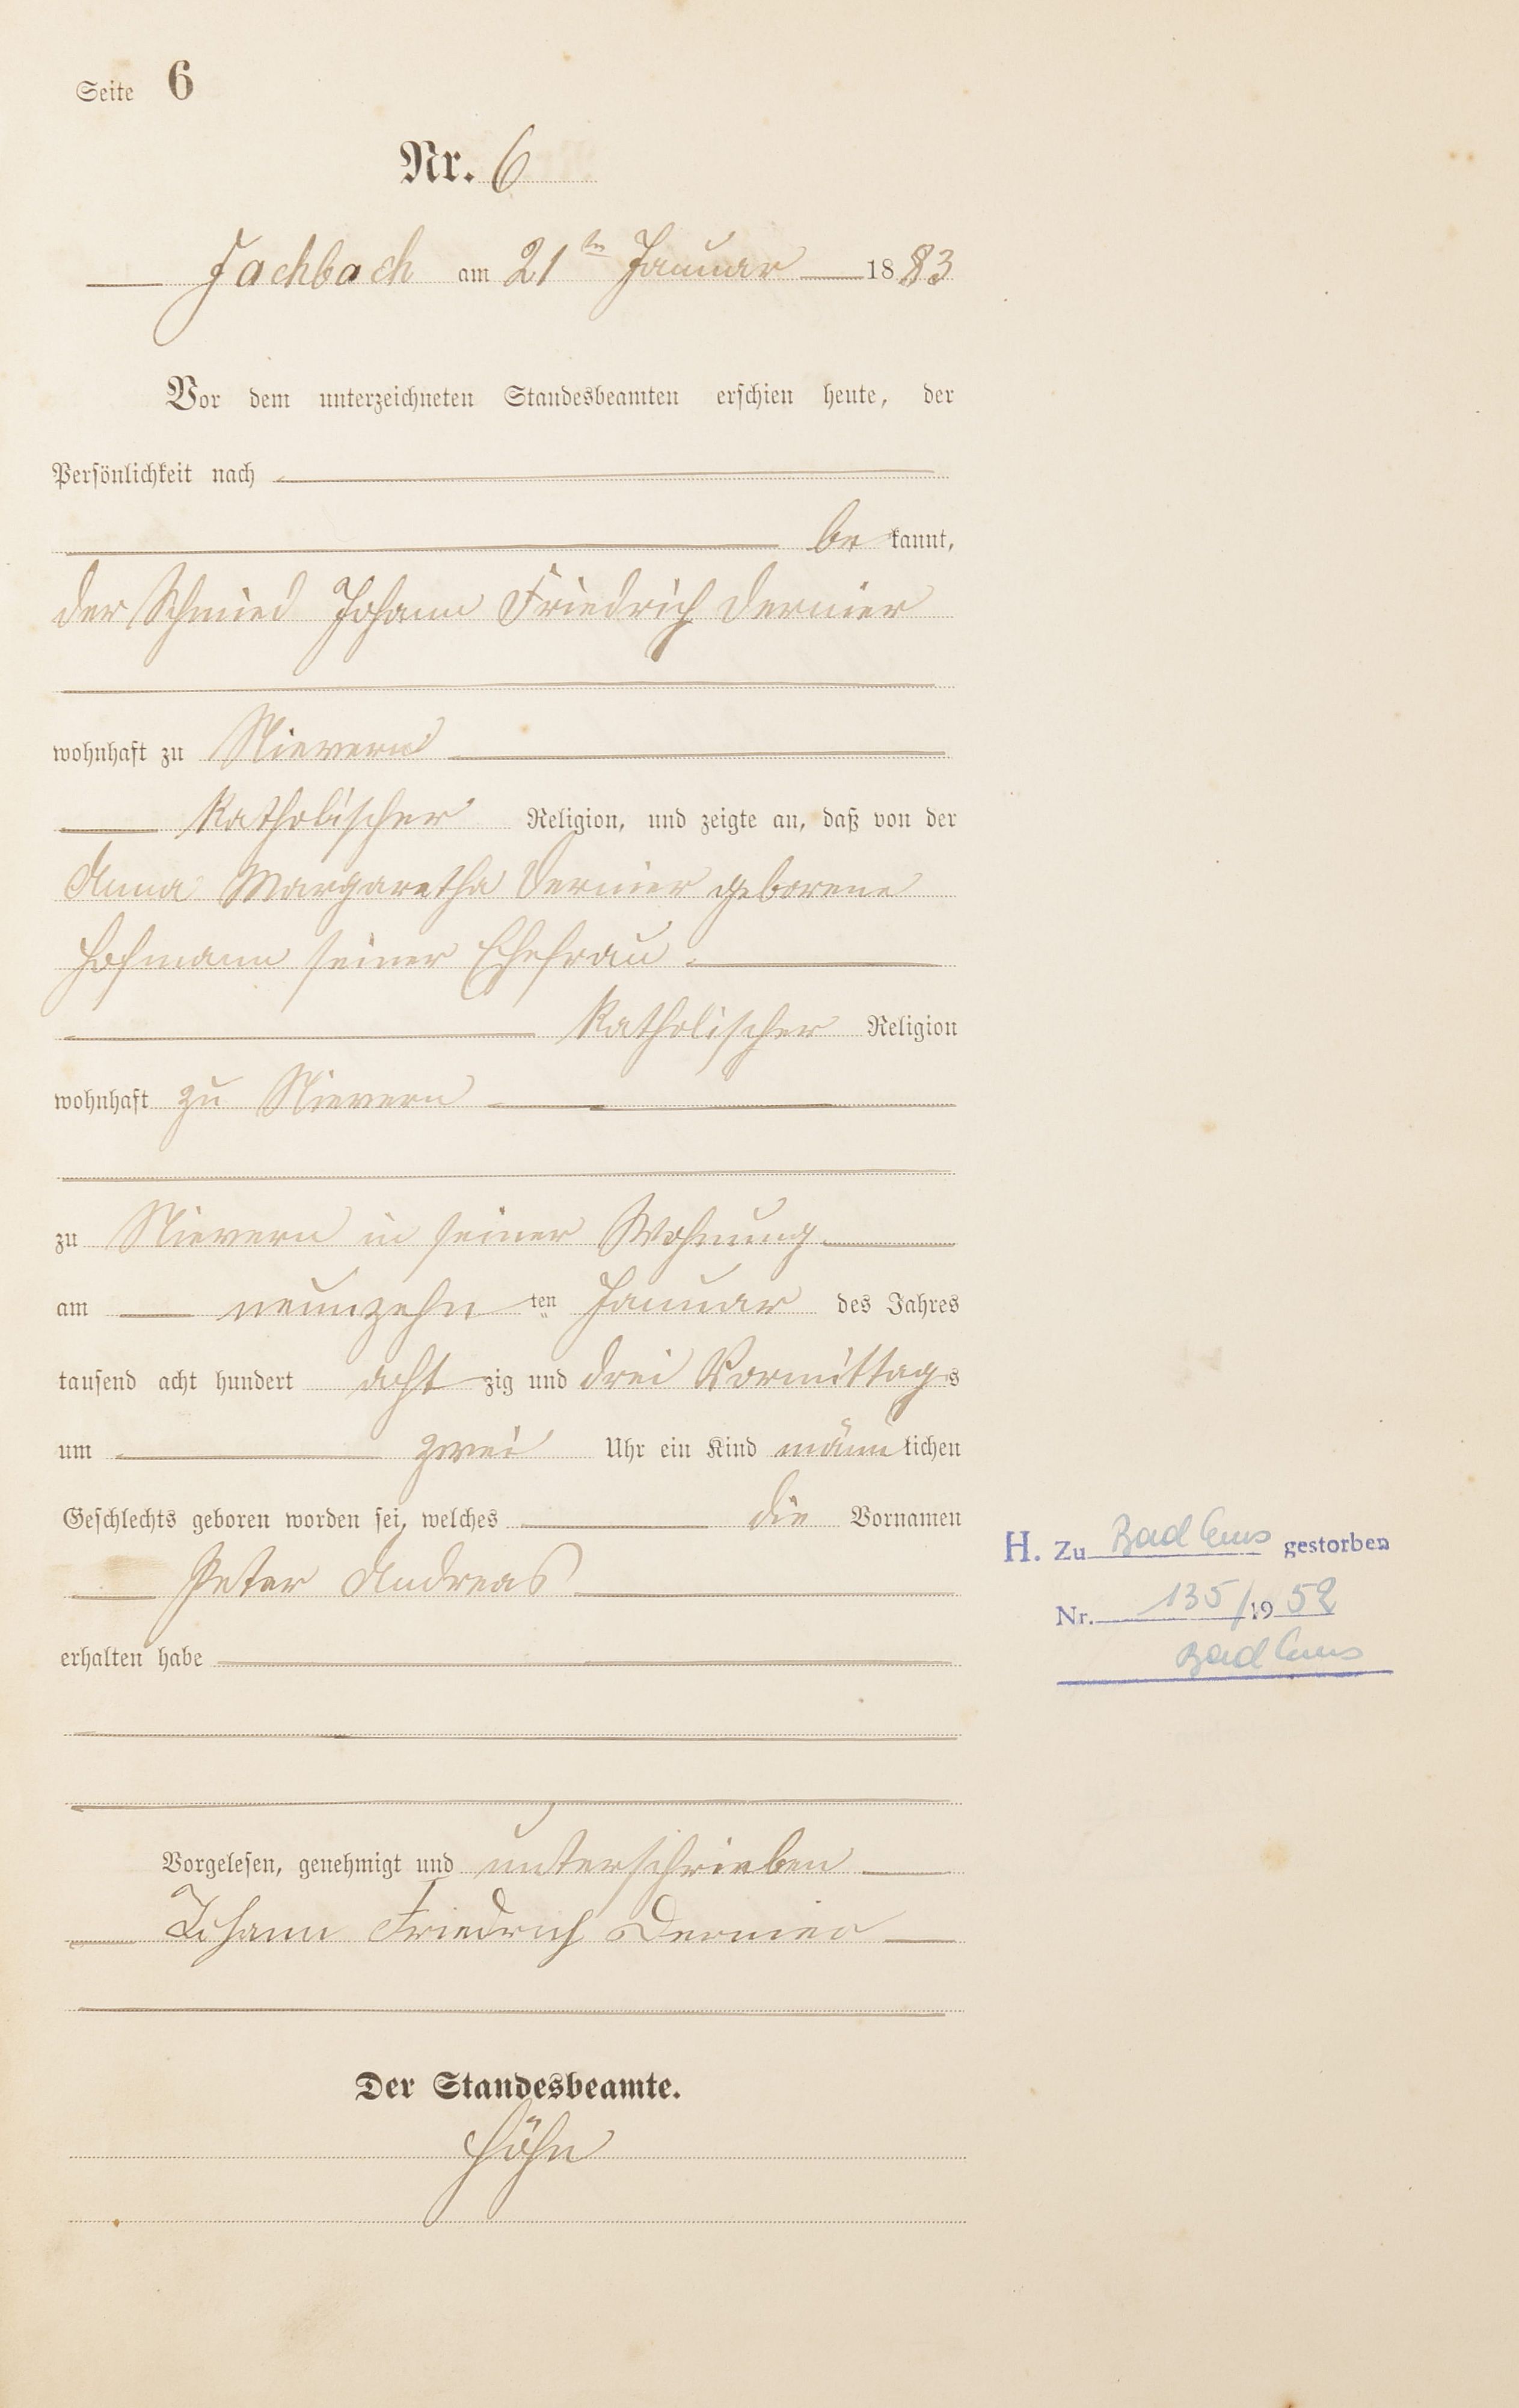 Seite 6
Nr. 6
Fachbach am 21ten Januar 1883
Vor dem unterzeichneten Standesbeamten erschien heute, der
Persönlichkeit nach
bekannt,
der Schmied Johann Friedrich Dernier
wohnhaft zu Nievern
katholischer Religion, und zeigte an, daß von der
Anna Margaretha Dernier geborene
Hofmann seiner Ehefrau
katholischer Religion
wohnhaft zu Nievern
zu Nievern in seiner Wohnung
am neunzehnten Januar des Jahres
tausend acht hundert achtzig und drei Vormittags
um zwei Uhr ein Kind männlichen
Geschlechts geboren worden sei, welches die Vornamen
Peter Andreas
erhalten habe
Vorgelesen, genehmigt und unterschrieben
Johann Friedrich Dernier
Der Standesbeamte.
Höhn
H. Zu Bad Ems gestorben
Nr. 135/1952
Bad Ems